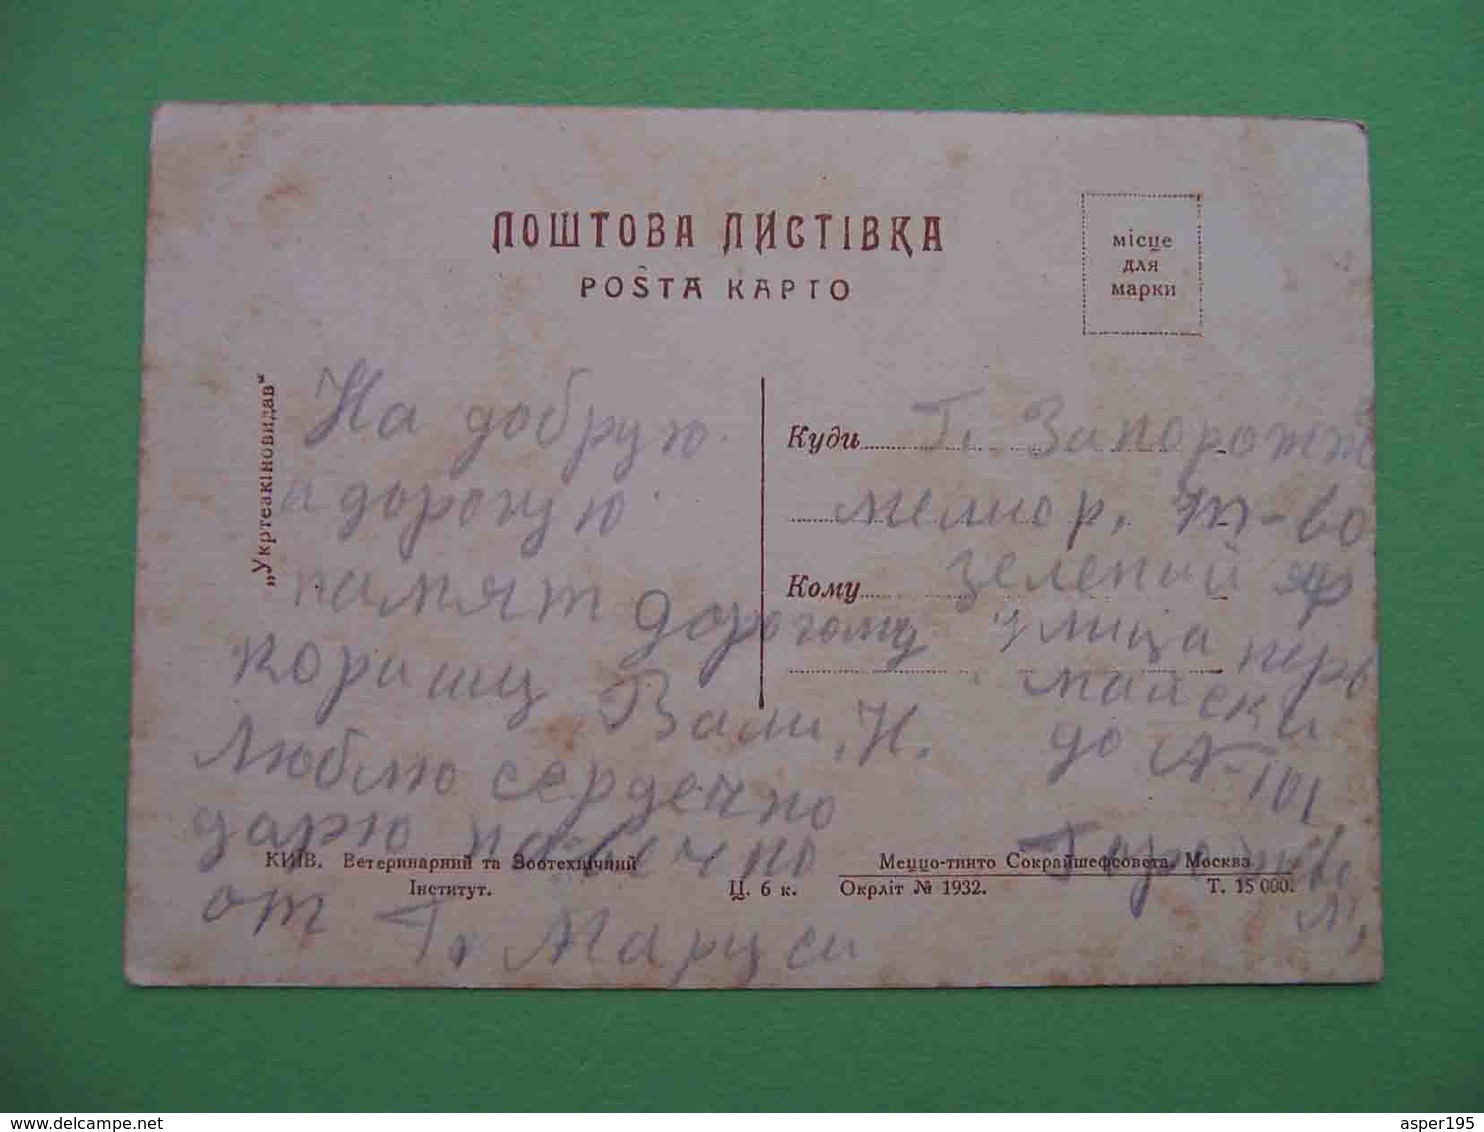 ПОШТОВА ЛИСТІВКА
POŜTA КАРТО
місце
для
марки
„Укртеакіновидав“
На добрую
а дорогую
памят дорогому
корашу Вали. Н.
Люблю сердечно
дарю на-вечно
от Г. Маруси
Куди Г. Запорожж
мелиор. т-во
Кому зелений яр
улица перв
майски
до №-101
КИЇВ. Ветеринарний та Зоотехнічний
Інститут.
Ц. 6 к.
Меццо-тинто Сокрайшефсовета, Москва
Окрліт № 1932.
Т. 15 000.
м,
delcampe.net
asper195